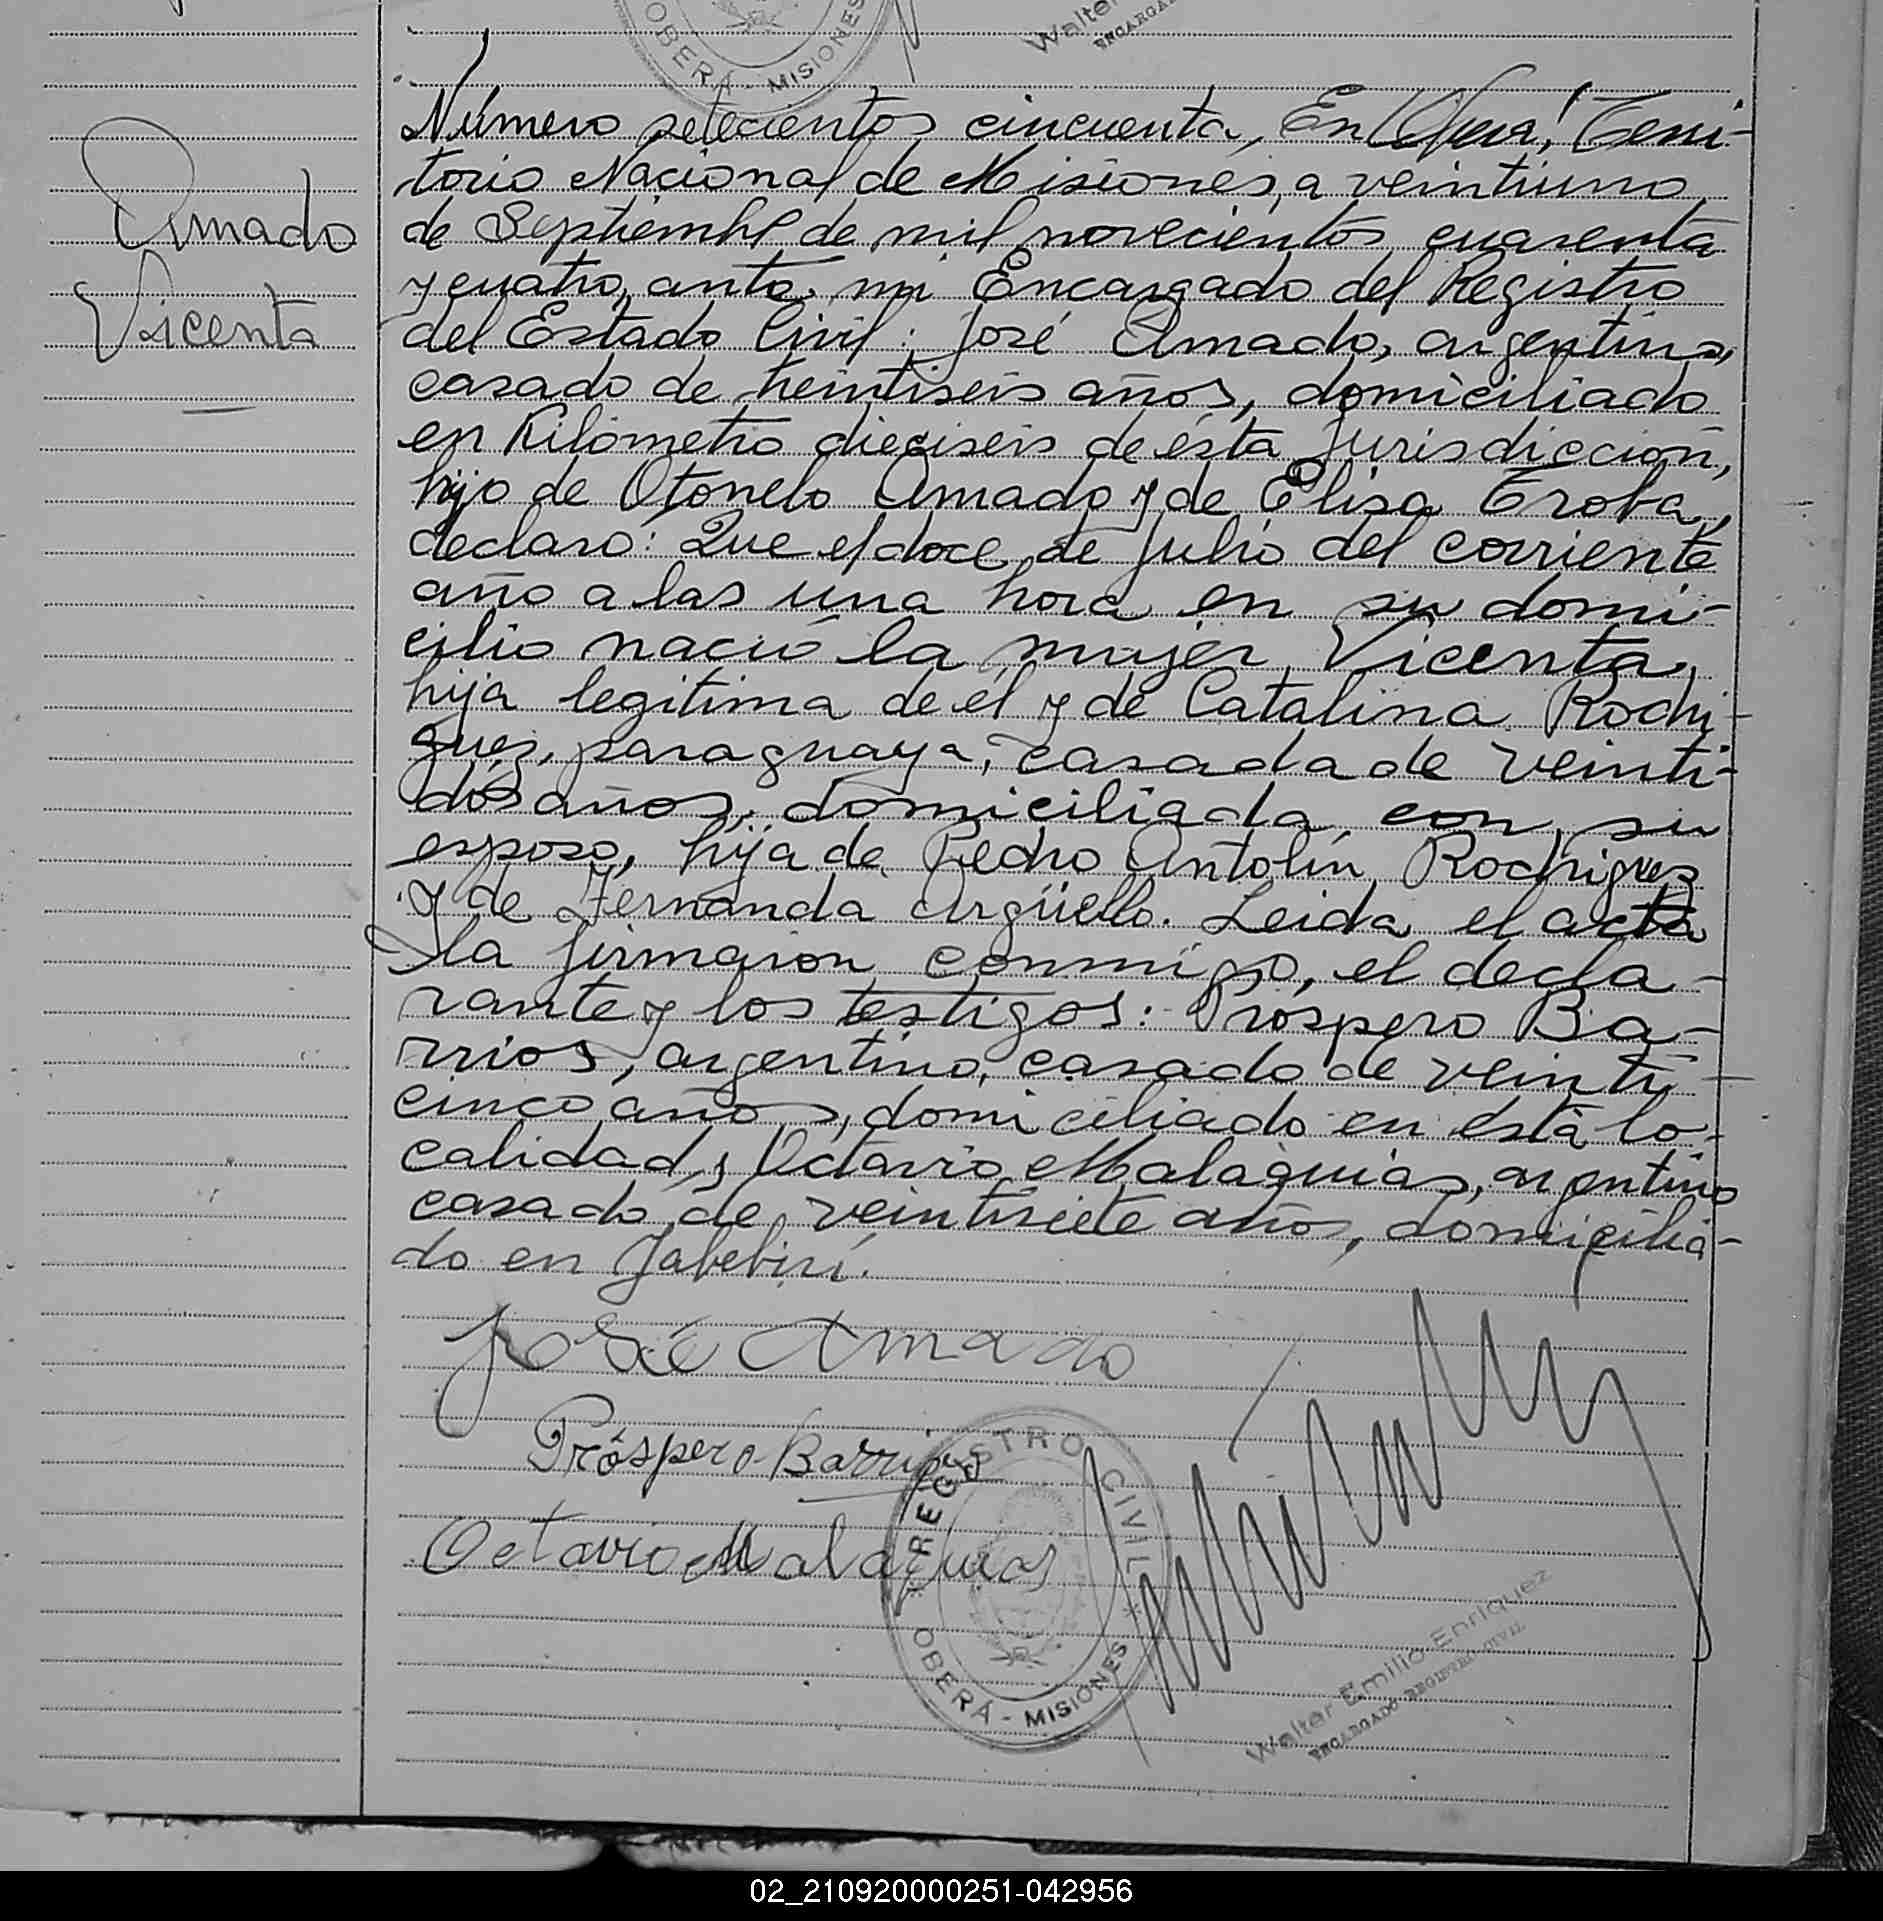 OBERÁ - MISIONES
Walter
ENCARGA
Amado
Vicenta
Número setecientos cincuenta, En Oberá, Terri-
torio Nacional de Misiones, a veintiuno
de Septiembre de mil novecientos cuarenta
y cuatro, ante mi Encargado del Registro
del Estado Civil: José Amado, argentino,
casado de treintiseis años, domiciliado
en Kilómetro dieciseis de ésta Jurisdicción,
hijo de Otonelo Amado y de Elisa Troba,
declaró: Que el doce de Julio del corriente
año a las una hora en su domi-
cilio nació la mujer Vicenta,
hija legítima de él y de Catalina Rodri-
guez, paraguaya, casada de veinti-
dós años, domiciliada con su
esposo, hija de Pedro Antolín Rodriguez
y de Fernanda Argüello. Leida el acta
la firmaron conmigo, el decla-
rante y los testigos: Próspero Ba-
rrios, argentino, casado de veinti-
cinco años, domiciliado en ésta lo-
calidad y Octavio Malaquias, argentino
casado de veintisiete años, domicilia-
do en Jabebirí.
José Amado
Próspero Barrios
Octavio Malaquias
REGISTRO CIVIL
OBERÁ - MISIONES
Walter Emilio Enriquez
ENCARGADO REGISTRO CIVIL
02_210920000251-042956